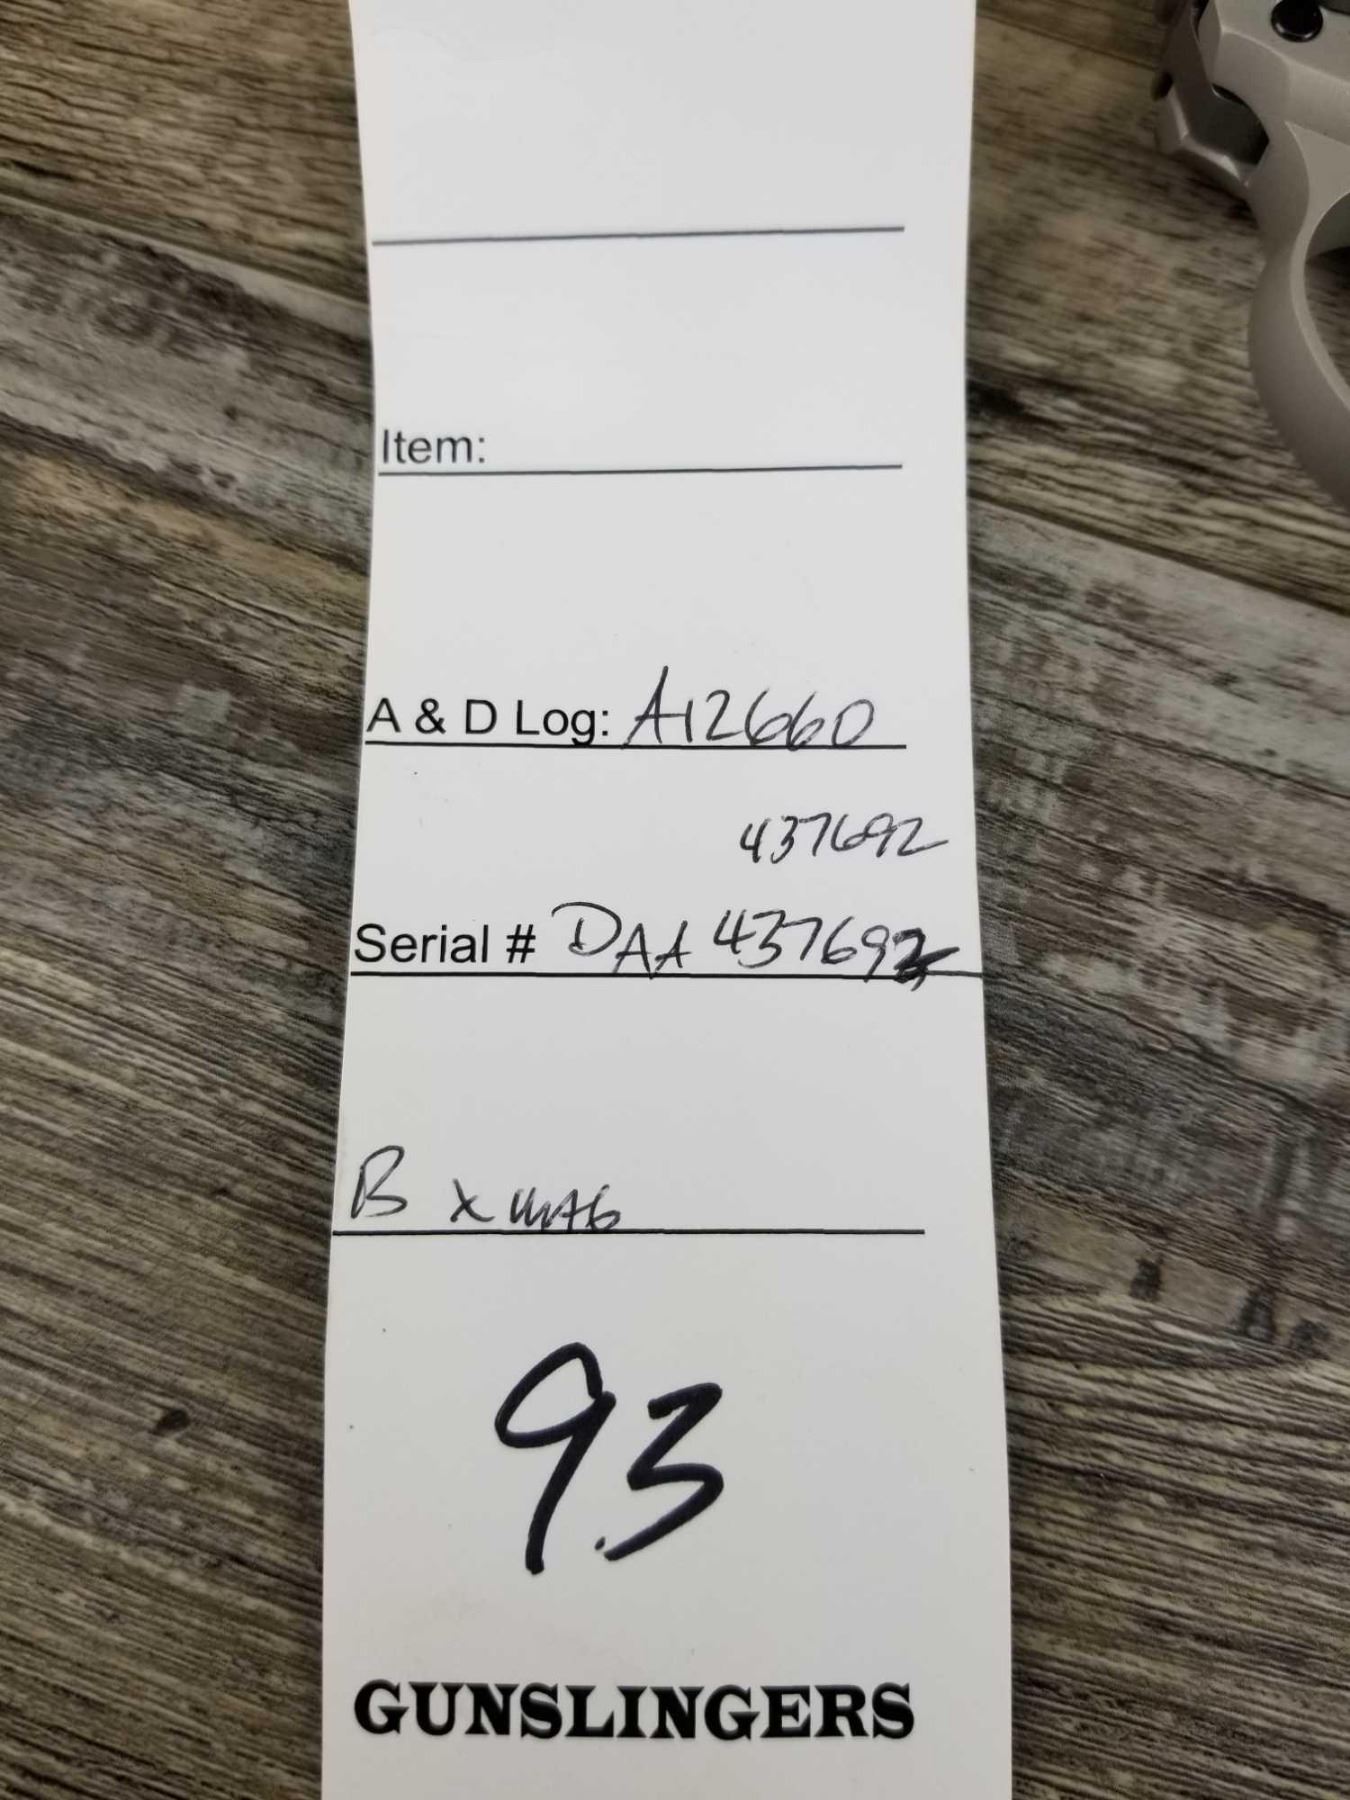 Item:
A & D Log: A12660
437692
Serial # DAA 437692
B x MAG
93
GUNSLINGERS